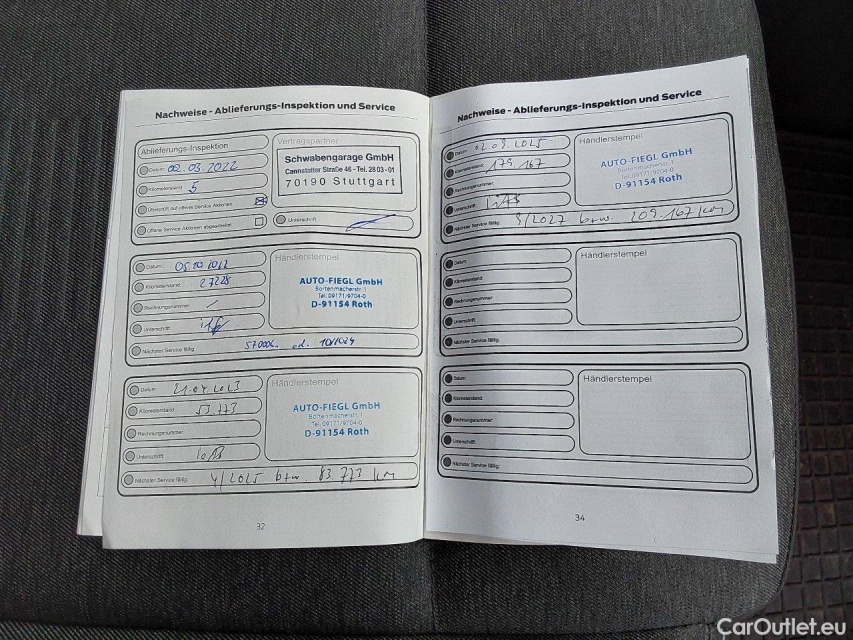 Nachweise - Ablieferungs-Inspektion und Service
Ablieferungs-Inspektion
Datum: 02.03.2022
Kilometerstand: 5
Überprüft auf offene Service Aktionen
Offene Service Aktionen abgearbeitet
Vertragspartner
Schwabengarage GmbH
Cannstatter Straße 46 - Tel. 28 03 - 01
70190 Stuttgart
Unterschrift:
Datum: 05.10.2022
Kilometerstand: 27228
Rechnungsnummer: /
Unterschrift:
Händlerstempel
AUTO-FIEGL GmbH
Bortenmacherstr. 1
Tel. 09171/9704-0
D-91154 Roth
Nächster Service fällig: 57000 od. 10/2024
Datum: 21.04.2023
Kilometerstand: 53.773
Rechnungsnummer:
Unterschrift:
Händlerstempel
AUTO-FIEGL GmbH
Bortenmacherstr. 1
Tel. 09171/9704-0
D-91154 Roth
Nächster Service fällig: 4/2025 bzw. 83.773 km
32
Nachweise - Ablieferungs-Inspektion und Service
Datum: 02.09.2025
Kilometerstand: 179.167
Rechnungsnummer:
Unterschrift:
Händlerstempel
AUTO-FIEGL GmbH
Bortenmacherstr. 1
Tel. 09171/9704-0
D-91154 Roth
Nächster Service fällig: 9/2027 bzw. 209.167 km
Datum:
Kilometerstand:
Rechnungsnummer:
Unterschrift:
Händlerstempel
Nächster Service fällig:
Datum:
Kilometerstand:
Rechnungsnummer:
Unterschrift:
Händlerstempel
Nächster Service fällig:
34
CarOutlet.eu